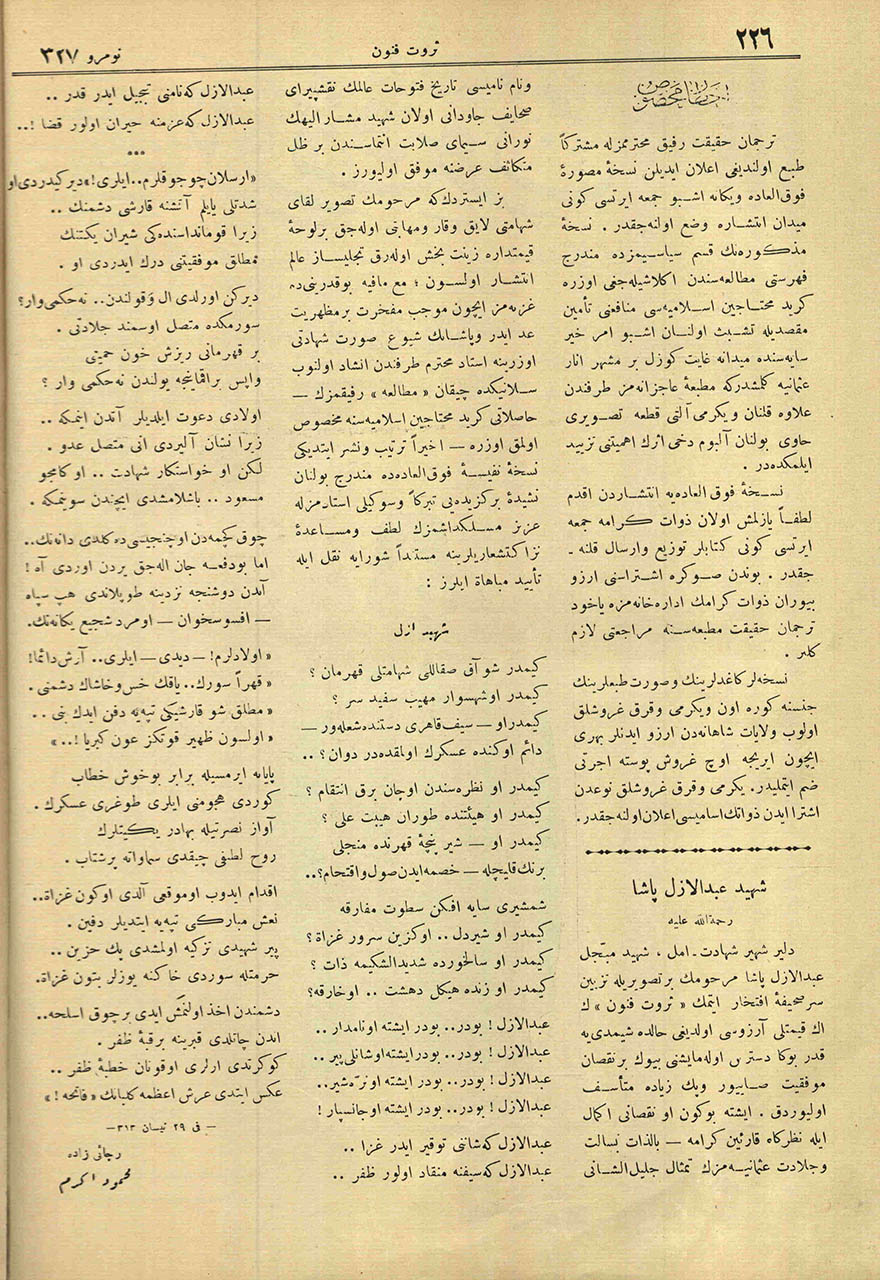 ٢٢٦
ثروت فنون
نومرو ٣٢٧
اخطار مخصوص
ترجمان حقیقت رفیق محترممزله مشتركاً
طبع اولندیغی اعلان ایدیلن نسخهٔ مصورهٔ
فوق العاده ویكانه اشبو جمعه ایرتسی كونی
میدان انتشاره وضع اولنه جقدر . نسخهٔ
مذكوره‌نك قسم سیاسیمزده مندرج
فهرستی مطالعه‌سندن اكلاشیله جغی اوزره
كرید محتاجین اسلامیه‌سی منافعنی تأمین
مقصدیله تشبث اولنان اشبو امر خیر
سایه‌سنده میدانه غایت كوزل بر مشهر آثار
عثمانیه كلمشدركه مطبعهٔ عاجزانه‌مز طرفندن
علاوه قلنان ویكرمی آلتی قطعه تصویری
حاوی بولنان آلبوم دخی اثرك اهمیتنی تزیید
ایلمكده‌در .
نسخهٔ فوق العاده‌یه انتشاردن اقدم
لطفاً یازلمش اولان ذوات كرامه جمعه
ایرتسی كونی كتابلر توزیع وارسال قلنه ـ
جقدر . بوندن صوكره اشتراسنی ارزو
بیوران ذوات كرامك اداره‌خانه‌مزه یاخود
ترجمان حقیقت مطبعه‌سنه مراجعتی لازم
كلیر .
نسخه‌لر كاغدلرینك وصورت طبعلرینك
جنسنه كوره اون ویكرمی وقرق غروشلق
اولوب ولایات شاهانه‌دن ارزو ایدنلر بهری
ایچون ایریجه اوچ غروش پوسته اجرتی
ضم ایتملیدر. یكرمی وقرق غروشلق نوعدن
اشترا ایدن ذواتك اسامیسی اعلان اولنه جقدر.
شهید عبدالازل پاشا
رحمة الله علیه
دلیر شهیر شهادت ـ امل ، شهید مبجل
عبدالازل پاشا مرحومك بر تصویریله تزیین
سرصحیفهٔ افتخار ایتمك « ثروت فنون » ك
اك قیمتلی آرزوسی اولدیغی حالده شیمدی‌یه
قدر بوكا دسترس اوله‌مایشنی بیوك بر نقصان
موفقیت صاییور وپك زیاده متأسف
اولیوردق . ایشته بوكون او نقصانی اكمال
ایله نظركاه قارئین كرامه — بالذات بسالت
وجلادت عثمانیه‌مزك تمثال جلیل الشانی
ونام نامیسی تاریخ فتوحات عالمك نقشپیرای
صحایف جاودانی اولان شهید مشار الیهك
نورانی سیمای صلابت انتماسندن بر ظل
منكاثف عرضنه موفق اولیورز .
بز ایستردك كه مرحومك تصویر لقای
شهامتی لایق وقار ومهابتی اوله جق بر لوحهٔ
قیمتداره زینت بخش اوله‌رق تجلیساز عالم
انتشار اولسون ؛ مع مافیه بوقدرینی ده
غزته‌مز ایچون موجب مفخرت بر مظهریت
عد ایدر وپاشانك شیوع صورت شهادتی
اوزرینه استاد محترم طرفندن انشاد اولنوب
سلانیكده چیقان « مطالعه » رفیقمزك —
حاصلاتی كرید محتاجین اسلامیه‌سنه مخصوص
اولمق اوزره — اخیراً ترتیب ونشر ایتدیكی
نسخهٔ نفیسهٔ فوق العاده‌ده مندرج بولنان
نشیدهٔ بركزیده‌یی تبركاً وسوكیلی استادمزله
عزیز مسلكداشمزك لطف ومساعدهٔ
نزاكتشعاریلرینه مستنداً شورایه نقل ایله
تأیید مباهاة ایلرز :
شهید ازل
كیمدر شو آق صقاللی شهامتلی قهرمان ؟
كیمدر او شهسوار مهیب سفید سر ؟
كیمدر او — سیف قاهری دستنده شعله‌ور —
دائم اوكنده عسكرك اولمقده‌در دوان ؟ ..
كیمدر او نظره‌سندن اوچان برق انتقام ؟
كیمدر او هیئتنده طوران هیبت علی ؟
كیمدر او — شیر پنجهٔ قهرنده منجلی
برنك قلیچله — خصمه ایدن صول واقتحام ؟..
شمشیری سایه افكن سطوت مفارقه
كیمدر او شیردل .. اوكزین سرور غزاة ؟
كیمدر او سالخورده شدید الشكیمه ذات ؟
كیمدر او زنده هیكل دهشت .. اوخارقه؟
عبدالازل ! بودر.. بودر ایشته اونامدار ..
عبدالازل ! بودر.. بودر ایشته اوشانلی پیر ..
عبدالازل ! بودر.. بودر ایشته اونره شیر..
عبدالازل ! بودر.. بودر ایشته اوجانسپار !
عبدالازل كه شاننی توقیر ایدر غزا ..
عبدالازل كه سیفنه منقاد اولور ظفر ..
عبدالازل كه نامنی تبجیل ایدر قدر ..
عبدالازل كه عزمنه حیران اولور قضا !..
***
« ارسلان چوجوقلرم.. ایلری! » دیر كیدردی او
شدتلی یایلم آتشنه قارشی دشمنك ..
زیرا قومانداسنده‌كی شیران یكتنك
مطلق موفقیتنی درك ایدردی او .
دیركن اورلدی ال وقولندن.. نه حكمی وار؟
سورمكده متصل اوسمند جلادتی .
بر قهرمانی ریزش خون حمیتی
واپس براقماینجه یولندن نه حكمی وار ؟
اولادی دعوت ایلدیلر آتدن اینمكه ..
زیرا نشان آلیردی انی متصل عدو .
لكن او خواستكار شهادت .. او كامجو
مسعود .. باشلامشدی ایچندن سوینمكه .
چوق كچمه‌دن اوچنجیسی ده كلدی دانه‌نك..
اما بودفعه جان اله جق یردن اوردی آه !
آتدن دوشنجه نزدینه طوپلاندی هپ سپاه
— افسوسخوان — اومرد شجیع یكانه‌نك.
« اولادلرم! — دیدی — ایلری.. آرش دائما!
« قهراً سورك.. یاقك خس وخاشاك دشمنی .
« مطلق شو قارشیكی تپه‌یه دفن ایدك بنی ..
« اولسون ظهیر قوتكز عون كبریا !.. »
پایانه ایرمسیله برابر بوخوش خطاب
كوردی هجومنی ایلری طوغری عسكرك .
آواز نصرتیله بهادر یكیتلرك
روح لطیفی چیقدی سماواته پرشتاب .
اقدام ایدوب اوموقعی آلدی اوكون غزاة..
نعش مباركی تپه‌یه ایتدیلر دفین .
پیر شهیدی تزكیه اولمشدی پك حزین ..
حرمتله سوردی خاكنه یوزلر بتون غزاة.
دشمندن اخذ اولنمش ایدی برچوق اسلحه..
اندن چاتلدی قبرینه برقبهٔ ظفر .
كوكرتدی ارلری اوقونان خطبهٔ ظفر ..
عكس ایتدی عرش اعظمه كلبانك « فاتحه ! »
— فی ٢٩ نیسان ٣١٣ —
رجائی زاده
محمود اكرم